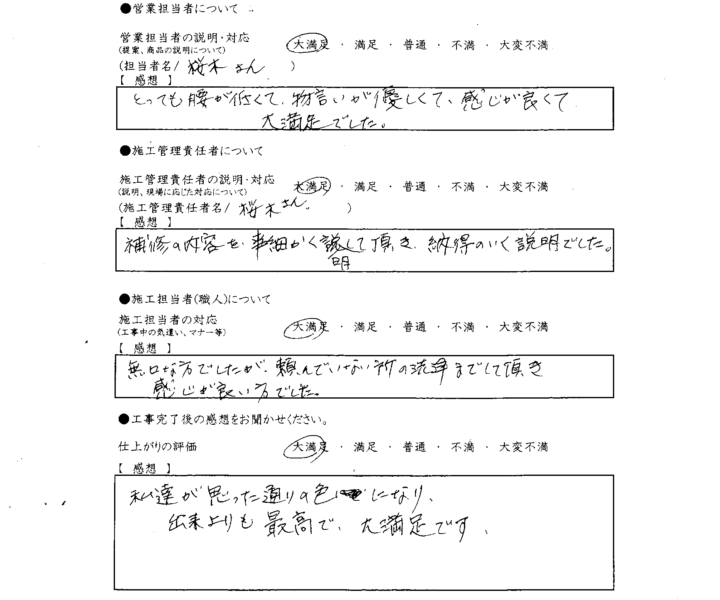 ●営業担当者について
営業担当者の説明・対応
(提案、商品の説明について)
大満足 ・ 満足 ・ 普通 ・ 不満 ・ 大変不満
(担当者名/ 桜木さん )
【 感想 】
とっても腰が低くて、物言いが優しくて、感じが良くて
大満足でした。
●施工管理責任者について
施工管理責任者の説明・対応
(説明、現場に応じた対応について)
大満足 ・ 満足 ・ 普通 ・ 不満 ・ 大変不満
(施工管理責任者名/ 桜木さん )
【 感想 】
補修の内容を、事細かく説明して頂き、納得のいく説明でした。
●施工担当者(職人)について
施工担当者の対応
(工事中の気遣い、マナー等)
大満足 ・ 満足 ・ 普通 ・ 不満 ・ 大変不満
【 感想 】
無口な方でしたが、頼んでいない所の洗浄までして頂き
感じが良い方でした。
●工事完了後の感想をお聞かせください。
仕上がりの評価
大満足 ・ 満足 ・ 普通 ・ 不満 ・ 大変不満
【 感想 】
私達が思った通りの色になり、
出来よりも最高で、大満足です、